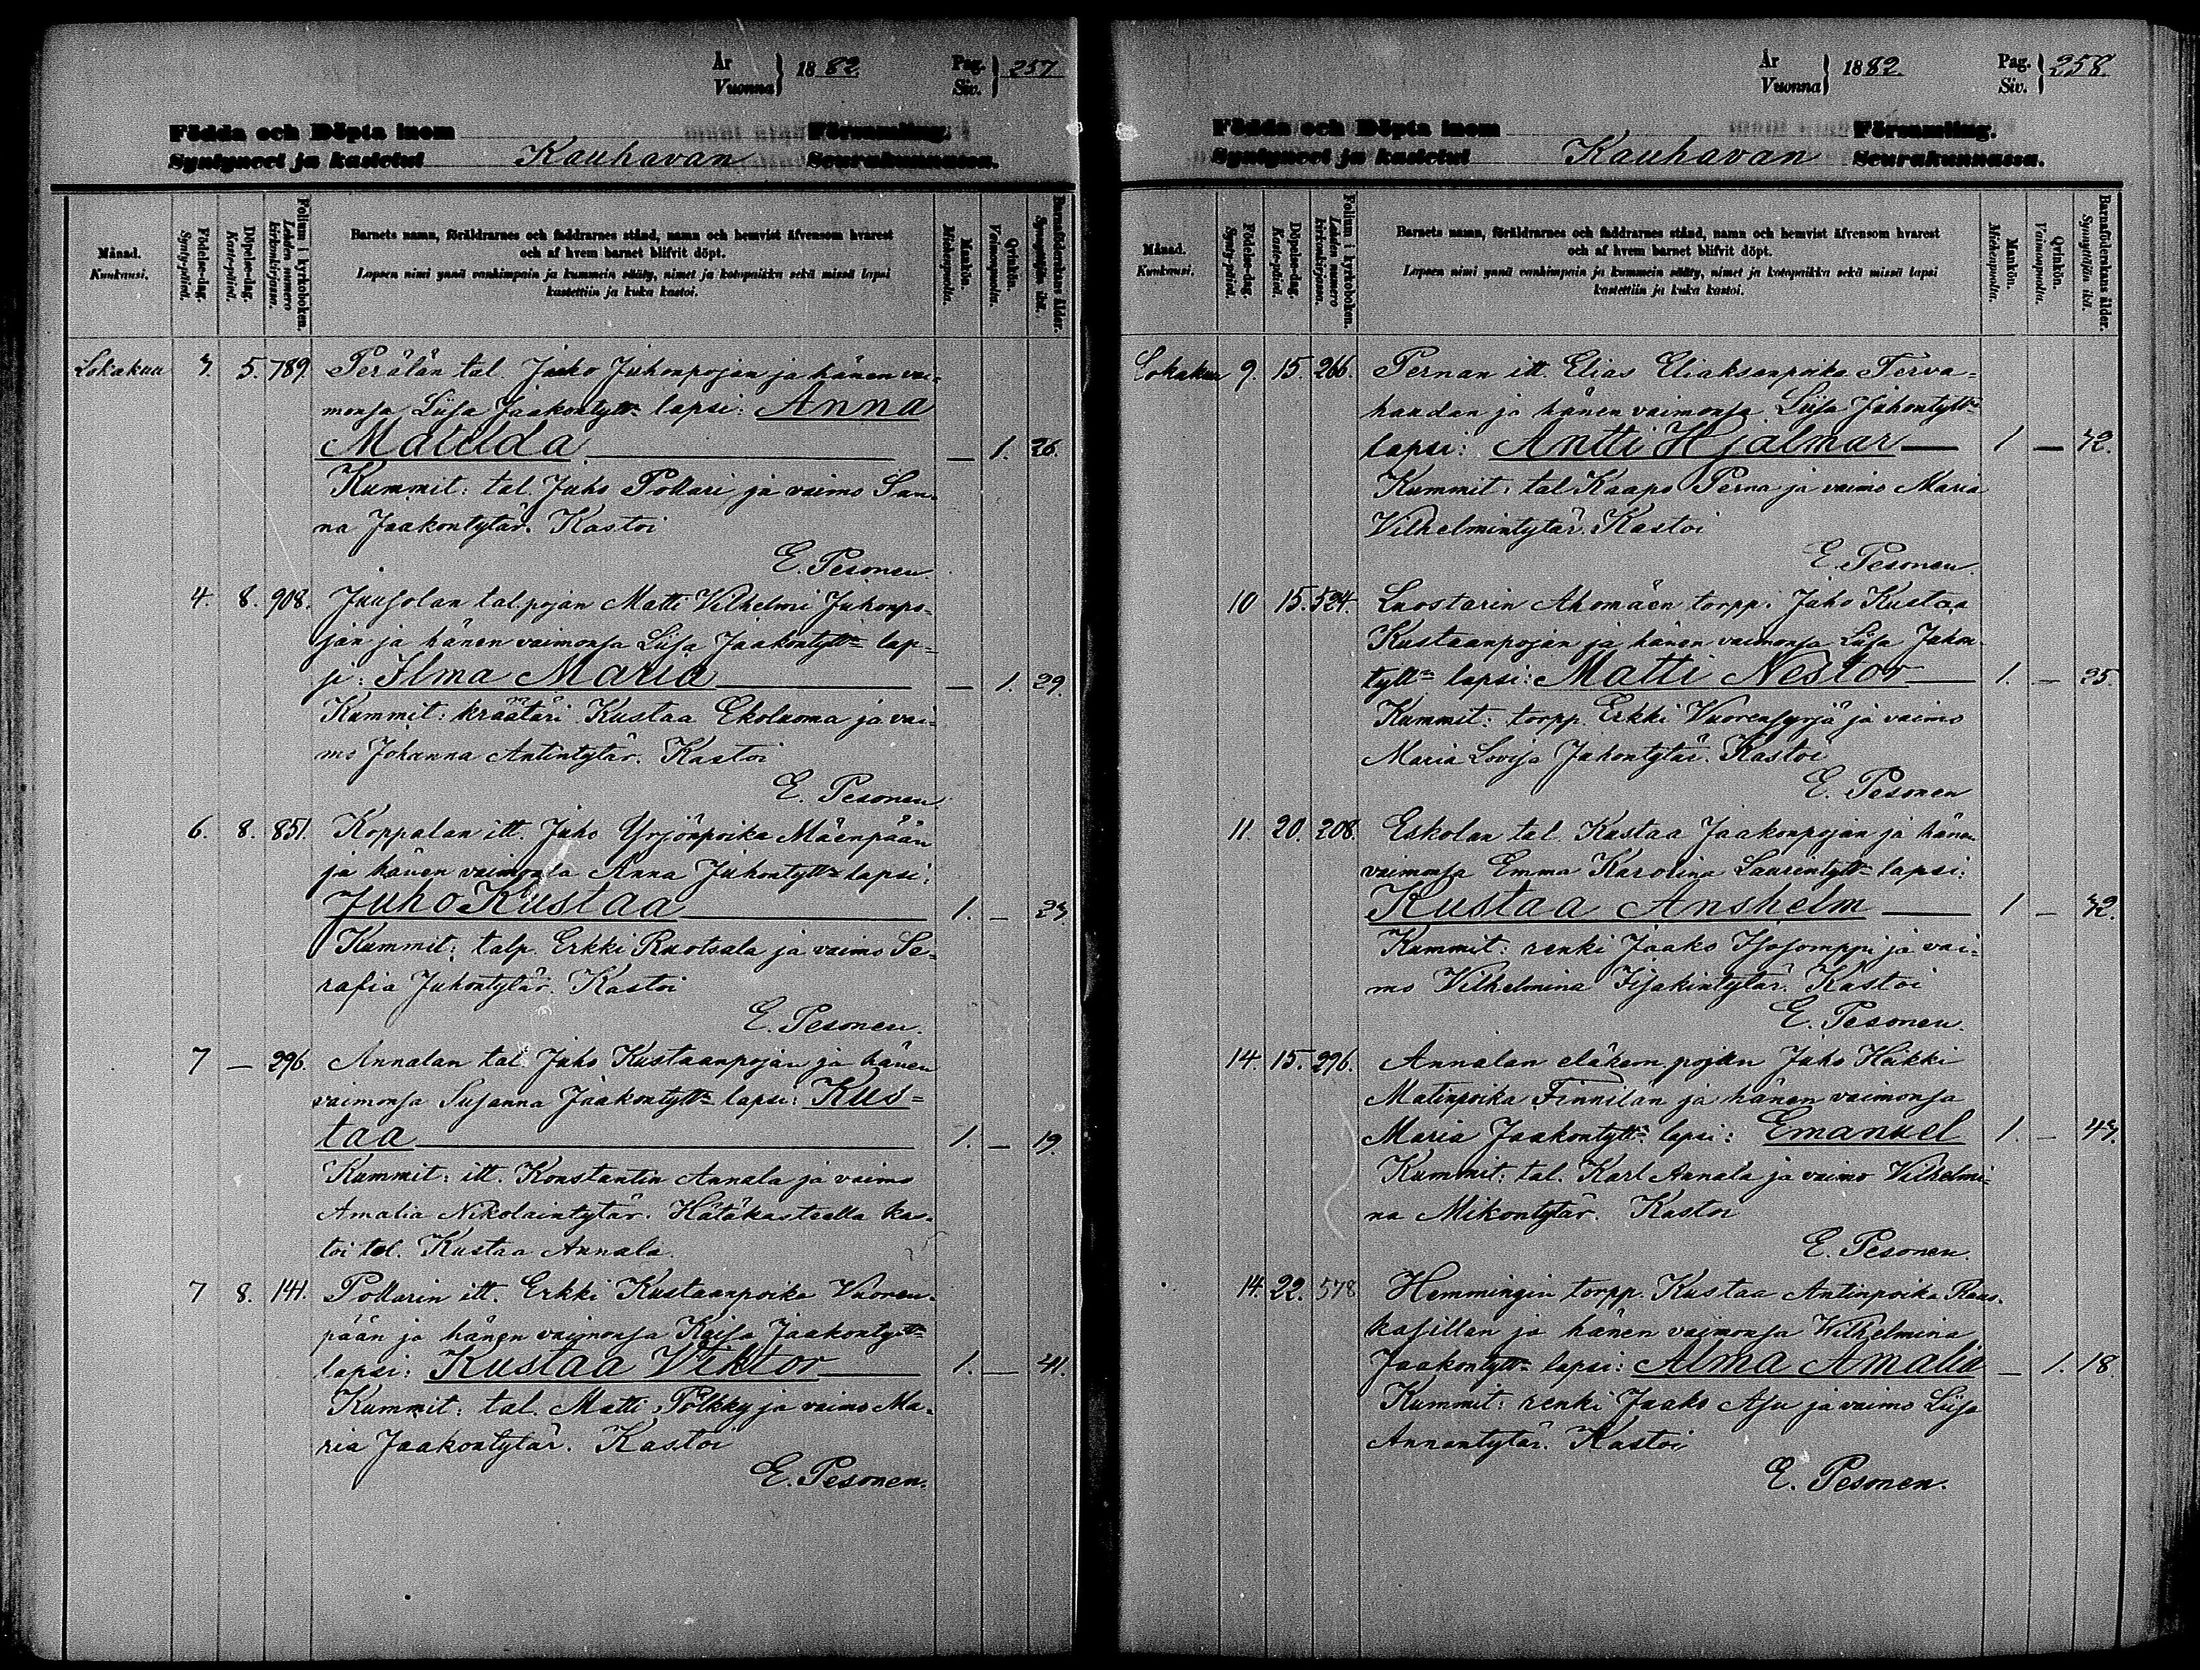 År
Vuonna } 1882.
Pag.
Siv. } 257
Födda och Döpta inom Församling.
Syntyneet ja kastetut Kauhavan Seurakunnassa.
Månad.
Kuukausi.
Födelse-dag.
Synty-päivä.
Döpelse-dag.
Kaste-päivä.
Folium i kyrkoboken.
Lehden numero kirkonkirjassa.
Barnets namn, föräldrarnes och faddrarnes stånd, namn och hemvist äfvensom hvarest
och af hvem barnet blifvit döpt.
Lapsen nimi ynnä vanhimpain ja kummein sääty, nimet ja kotopaikka sekä missä lapsi
kastettiin ja kuka kastoi.
Mankön.
Miehenpuolia.
Qvinkön.
Vaimonpuolia.
Barnaföderskans ålder.
Synnyttäjän ikä.
Lokakuu 3. 5. 789. Perälän tal. Juho Juhonpojan ja hänen vai-
monsa Liisa Jaakontytt= lapsi: Anna
Matilda — 1. 26.
Kummit: tal. Juho Pollari ja vaimo San-
na Jaakontytär. Kastoi
E. Pesonen.
4. 8. 908. Juusolan talpojan Matti Vilhelmi Juhonpo-
jan ja hänen vaimonsa Liisa Jaakontytt= lap-
si: Ilma Maria — 1. 29.
Kummit: kräätäri Kustaa Ekoluoma ja vai-
mo Johanna Antintytär. Kastoi
E. Pesonen.
6. 8. 851. Koppalan itt. Juho Yrjönpoika Mäenpään
ja hänen vaimonsa Anna Juhontytt= lapsi:
Juho Kustaa 1. — 23.
Kummit: talp. Erkki Ruotsala ja vaimo Se-
rafia Juhontytär. Kastoi
E. Pesonen.
7 — 296. Annalan tal. Juho Kustaanpojan ja hänen
vaimonsa Susanna Jaakontytt= lapsi: Kus=
taa 1. — 19.
Kummit: itt. Konstantin Annala ja vaimo
Amalia Nikolaintytär. Hätäkasteella kas-
toi tal. Kustaa Annala.
7 8. 141. Pollarin itt. Erkki Kustaanpoika Vuoren-
pään ja hänen vaimonsa Kaisa Jaakontytt=
lapsi: Kustaa Viktor 1. — 41.
Kummit: tal. Matti Pölkky ja vaimo Ma-
ria Jaakontytär. Kastoi
E. Pesonen.
År
Vuonna } 1882.
Pag.
Siv. } 258.
Födda och Döpta inom Församling.
Syntyneet ja kastetut Kauhavan Seurakunnassa.
Månad.
Kuukausi.
Födelse-dag.
Synty-päivä.
Döpelse-dag.
Kaste-päivä.
Folium i kyrkoboken.
Lehden numero kirkonkirjassa.
Barnets namn, föräldrarnes och faddrarnes stånd, namn och hemvist äfvensom hvarest
och af hvem barnet blifvit döpt.
Lapsen nimi ynnä vanhimpain ja kummein sääty, nimet ja kotopaikka sekä missä lapsi
kastettiin ja kuka kastoi.
Mankön.
Miehenpuolia.
Qvinkön.
Vaimonpuolia.
Barnaföderskans ålder.
Synnyttäjän ikä.
Lokakuu 9. 15. 266. Pernan itt. Elias Eliaksenpoika Terva=
haudan ja hänen vaimonsa Liisa Juhontytt=
lapsi: Antti Hjalmar 1 — 42.
Kummit: tal Kaapo Perna ja vaimo Maria
Vilhelmintytär. Kastoi
E. Pesonen.
10 15. 524. Luostarin Ahomäen torpp. Juho Kustaa
Kustaanpojan ja hänen vaimonsa Liisa Juhon-
tytt= lapsi: Matti Nestor 1. — 25.
Kummit: torpp. Erkki Vuorensyrjä ja vaimo
Maria Lovisa Juhontytär. Kastoi
E. Pesonen
11. 20. 208. Eskolan tal. Kustaa Jaakonpojan ja hänen
vaimonsa Emma Karolina Laurintytt= lapsi:
Kustaa Anshelm 1 — 42.
Kummit: renki Jaako Isosomppi ja vai-
mo Vilhelmina Iisakintytär. Kastoi
E. Pesonen.
14. 15. 296. Annalan eläkem. pojan Juho Heikki
Matinpoika Finnilän ja hänen vaimonsa
Maria Jaakontytt= lapsi: Emanuel 1. — 43.
Kummit: tal. Karl Annala ja vaimo Vilhelmi-
na Mikontytär. Kastoi
E. Pesonen.
14. 22. 578 Hemmingin torpp. Kustaa Antinpoika Raus-
kasillan ja hänen vaimonsa Wilhelmina
Jaakontytt= lapsi: Alma Amalia — 1. 18.
Kummit: renki Jaako Asu ja vaimo Liisa
Annantytär. Kastoi
E. Pesonen.